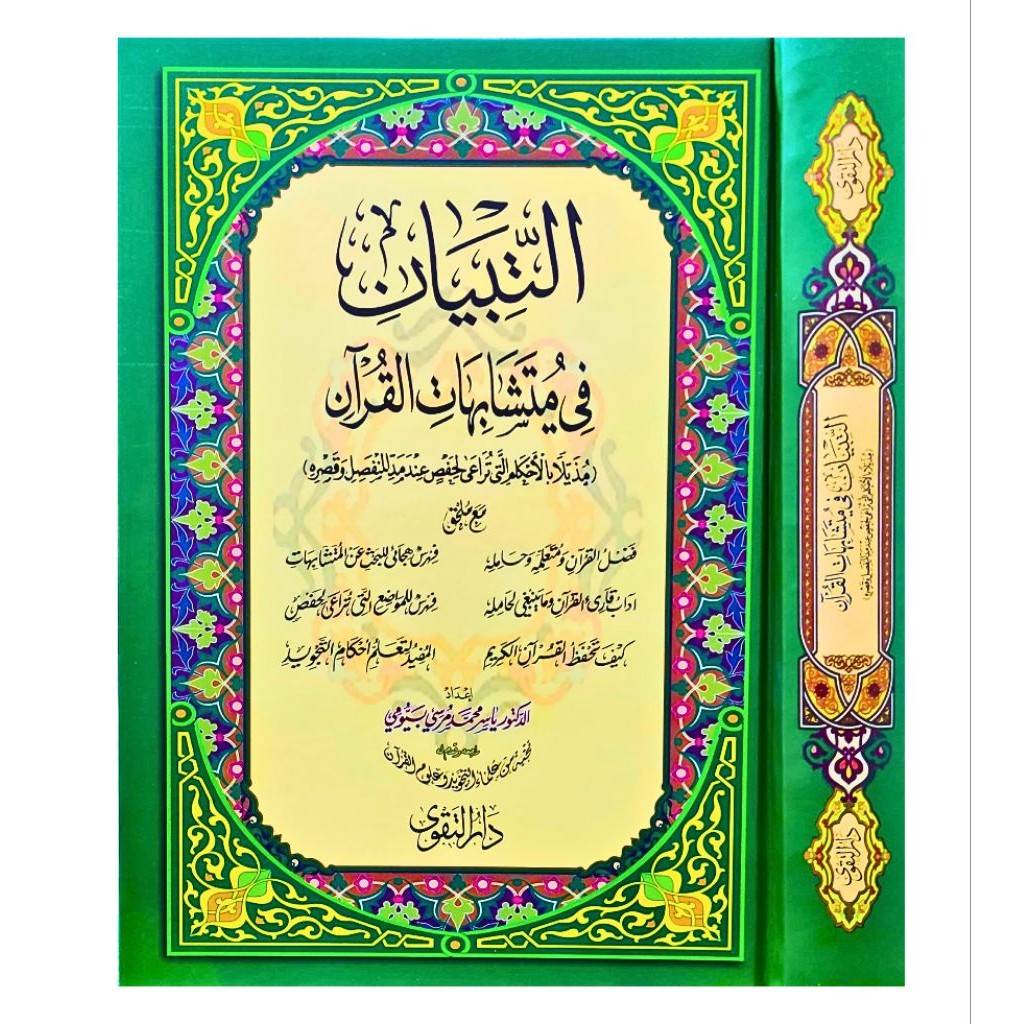 التِّبْيَانِ
فِي مُتَشَابِهَاتِ القُرْآنِ
(مُذَيَّلًا بِالأَحْكَامِ الَّتِي تُرَاعَى لِحَفْصٍ عِنْدَ مَدِّ المُنْفَصِلِ وَقَصْرِهِ)
مَعَ مُلْحَقٍ
فَضْلُ القُرْآنِ وَمُتَعَلِّمِهِ وَحَامِلِهِ فِهْرِسٌ هِجَائِيٌّ لِلْبَحْثِ عَنِ المُتَشَابِهَاتِ
آدَابُ قَارِئِ القُرْآنِ وَمَا يَنْبَغِي لِحَامِلِهِ فِهْرِسٌ لِلْمَوَاضِعِ الَّتِي تُرَاعَى لِحَفْصٍ
كَيْفَ تَحْفَظُ القُرْآنَ الكَرِيمَ المُفِيدُ لِتَعَلُّمِ أَحْكَامِ التَّجْوِيدِ
إعْدَادُ
الدكتور ياسر محمد مرسي بيومي
نخبة من علماء التجويد وعلوم القرآن
دار التقوى
دار التقوى
التِّبْيَانِ فِي مُتَشَابِهَاتِ القُرْآنِ
دار التقوى